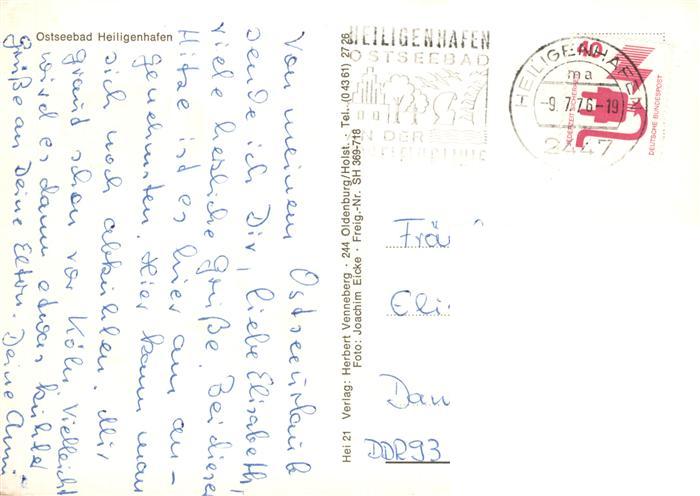 Ostseebad Heiligenhafen
Von meinem Ostseeurlaub
sende ich Dir, liebe Elisabeth,
viele herzliche Grüße. Bei dieser
Hitze ist es hier am an-
genehmsten. Hier kann man
sich noch abkühlen. Mir
graut schon vor Köln. Vielleicht
wird es dann etwas kühler
Grüße an Deine Eltern. Deine
Hei 21 Verlag: Herbert Venneberg · 244 Oldenburg/Holst. · Tel. (0 43 61) 27 26
Foto: Joachim Eicke · Freig.-Nr. SH 369-718
HEILIGENHAFEN
OSTSEEBAD
IN DER
HEILIGENHAFEN
ma
-9.7.76-19
2447
40
JEDERZEIT SICHERHEIT
DEUTSCHE BUNDESPOST
Frä
Eli
Dan
DDR93